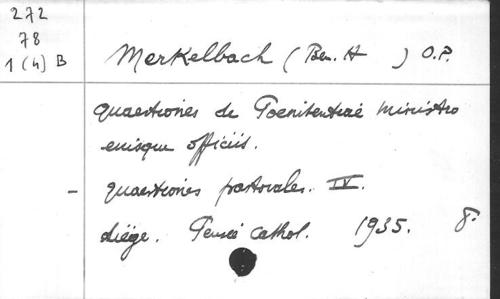 272
78
1(4) B
Merkelbach (Ben. H ) O.P.
Quaestiones de Poenitentiae ministro
eiusque officiis.
- quaestiones pastorales. IV.
Liége. Pensée cathol. 1935. 8.